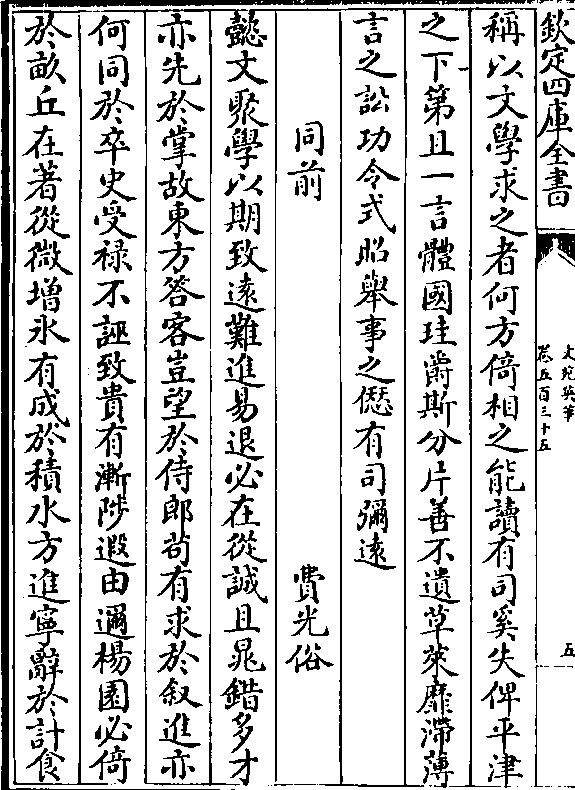 欽定四庫全書
文苑英華
卷五百三十五
五
稱以文學求之者何方倚相之能讀有司奚失俾平津
之下第且一言體國珪爵斯分片善不遺草萊靡滯薄
言之訟功令式昭舉事之愆有司彌遠
同前
費光俗
懿文聚學以期致遠難進易退必在從誠且晁錯多才
亦先於掌故東方答客豈望於侍郎茍有求於叙進亦
何同於卒史受祿不誣致貴有漸陟遐由邇楊園必倚
於畝丘在著從微增氷有成於積水方進寧辭於計食